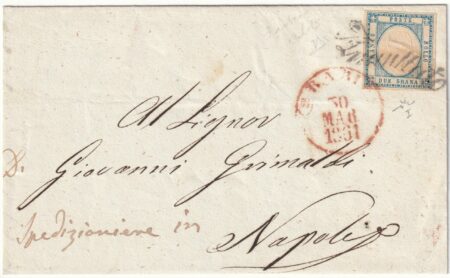 FRANCO
BOLLO
DUE GRANA
BARI
30
MAG
1861
Al Signor
D. Giovanni Grimaldi
Spedizioniere in
Napoli